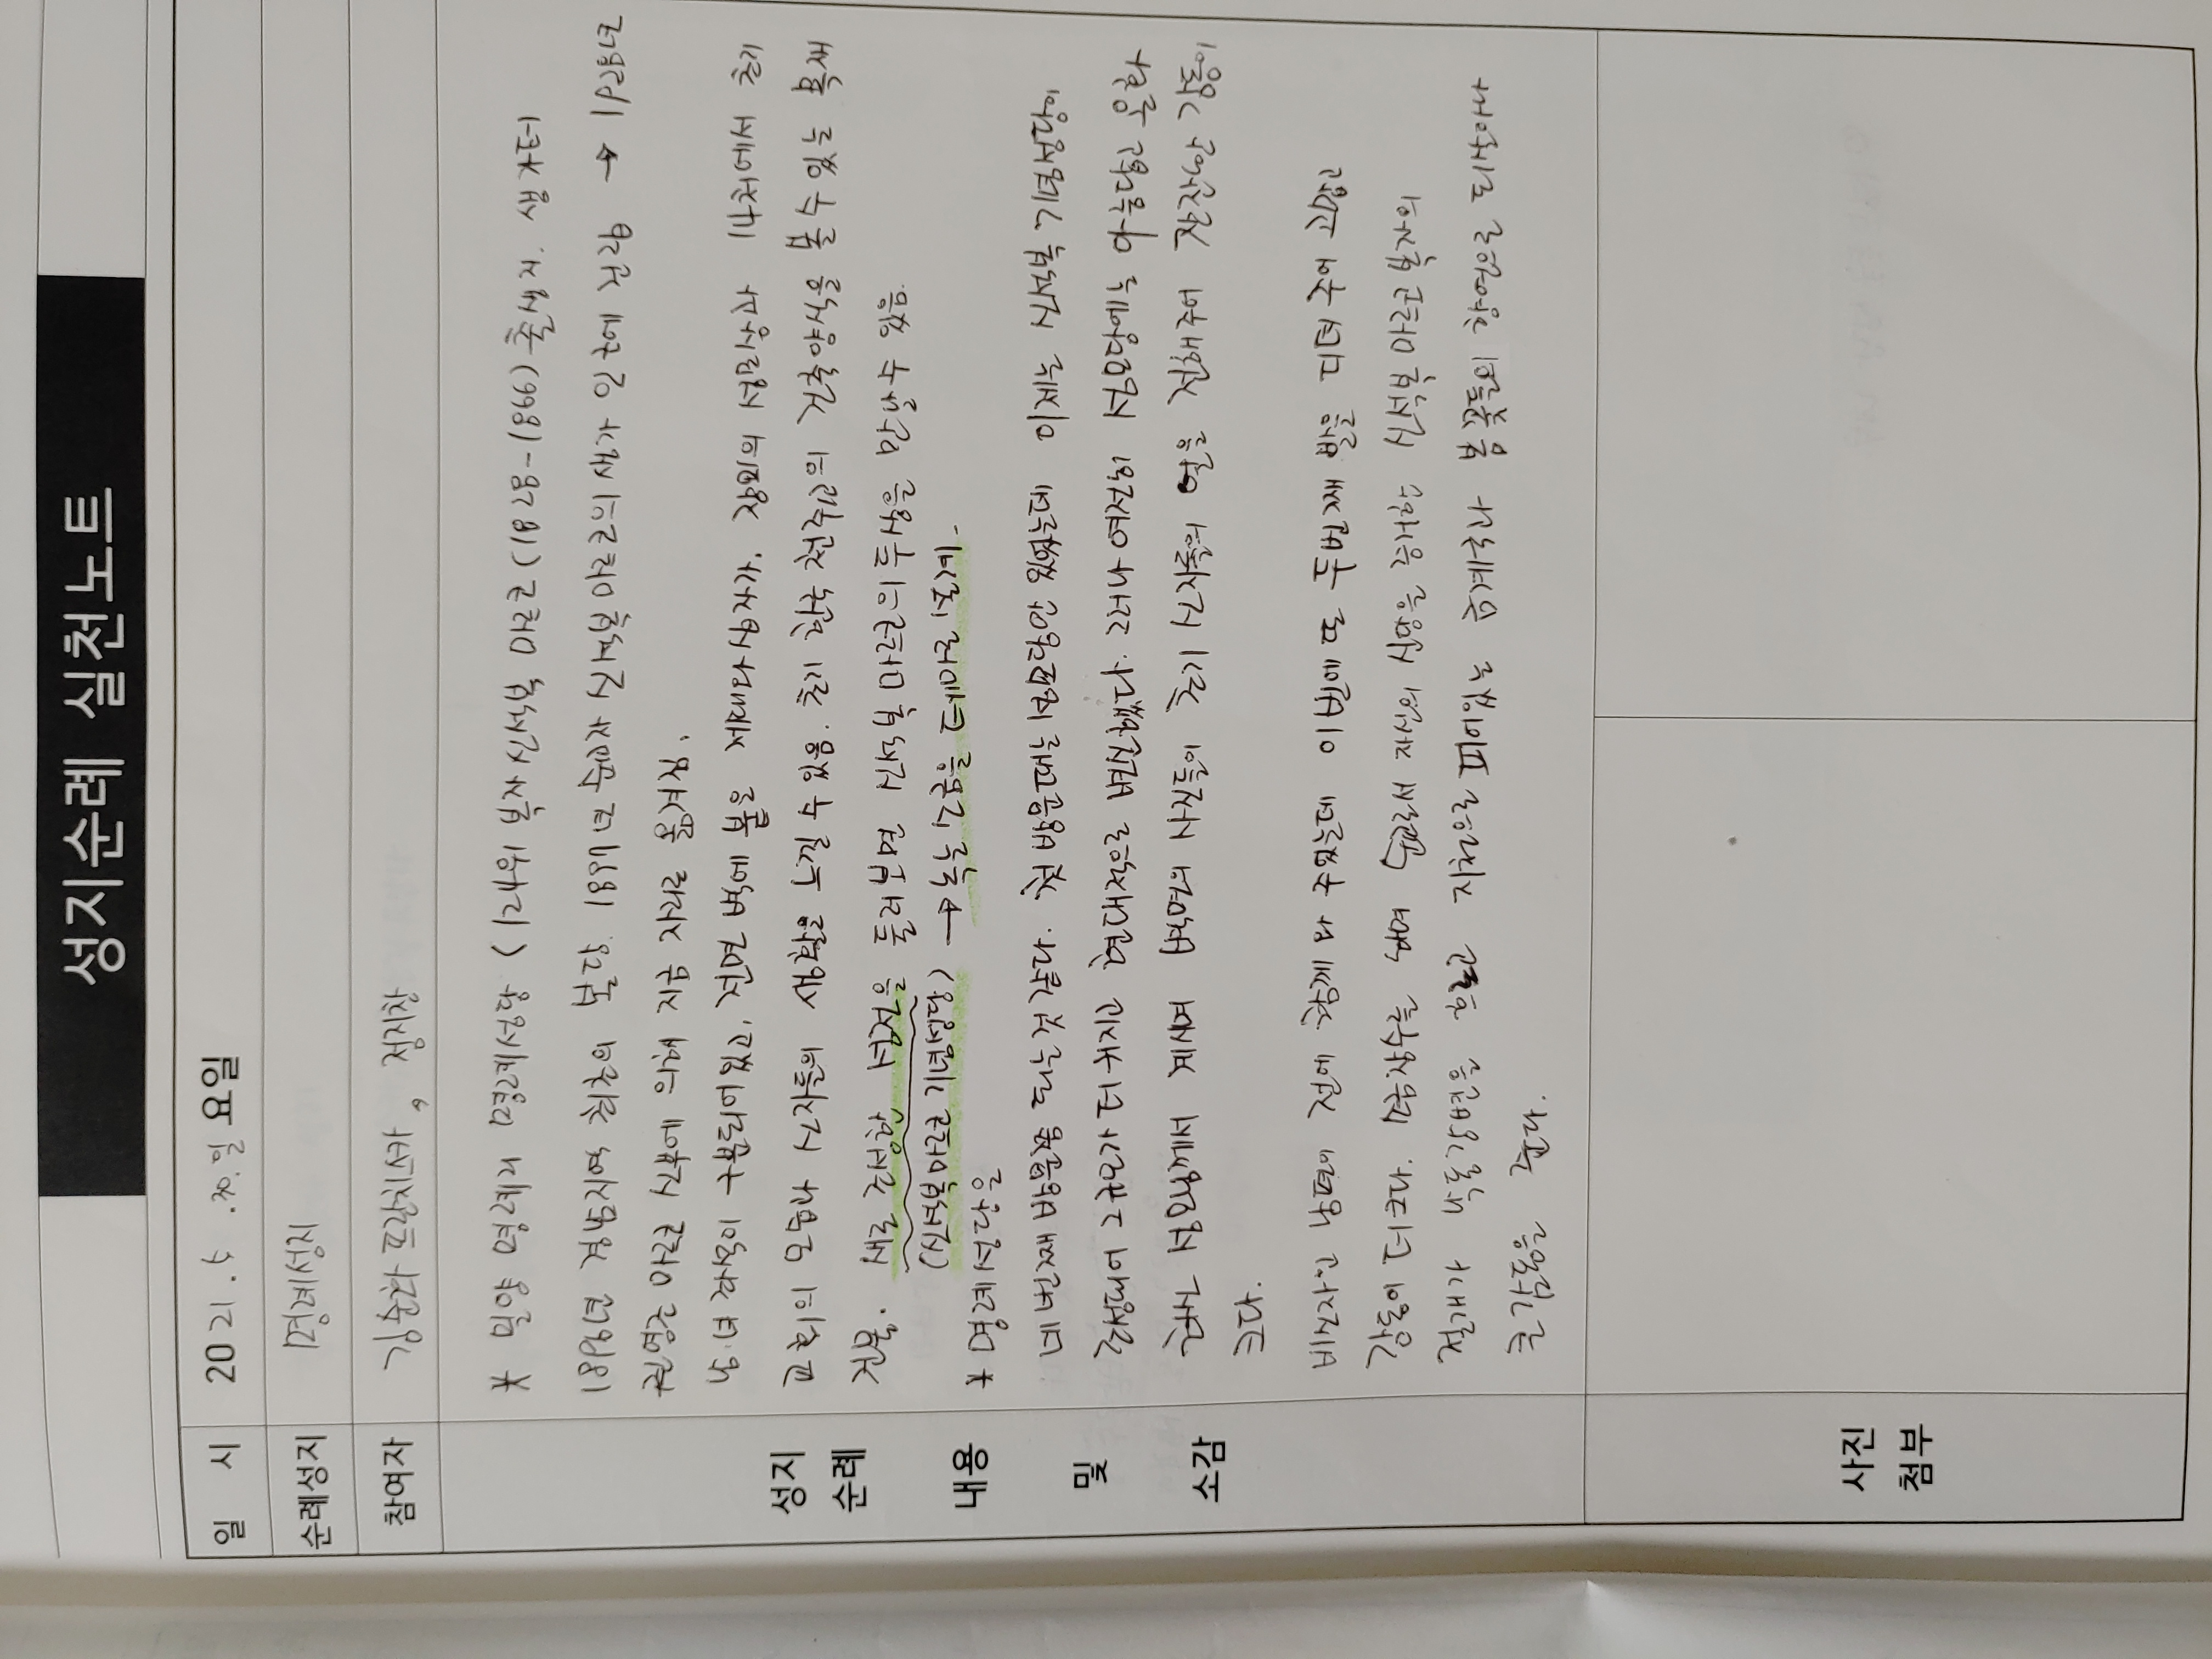 성지순례 실천노트
일 시 2021. 5. 30. 일 요일
순례성지 명례성지
참여자 김순화 프란치스카, 정지창
* 밀양 명례리 명례성당 < 124위 복자 신석복 마르코 (1828-1866) 출생지. 생가터
1896년 경남지역 최초의 본당. 1897년 순교자 신석복 마르코의 생가 인근에 건립 → 1928년
권영조 마르코 신부에 의해 지금 자리로 옮겨짐.
남.녀 좌석이 구분되어 있고, 전면 벽에 붙은 제대와 십자가. 장미의 성모상과 14처에서 초기
교회의 모습과 신자들의 생활을 느낄 수 있음. 초기 한국 천주교의 건축양식을 볼 수 있는 목재
건물. 새로 조성한 성전을 둘러보면 신석복 마르코의 두상을 만날 수 있음.
(신석복 마르코 기념성당) → 녹는 소금을 테마로 설계.
* 명례성당은
네 번째 방문쯤 되는 것 같다. 첫 방문때는 성모당만 있었는데 이제는 신석복 기념성당이
조성되어 그 규모가 더 커지고 현대적으로 변신했다. 그러나 여전히 성모당에는 아름답고 온화
하신 성모님께서 계시며 벽면의 사진들이 초기 신자들의 얼을 전해주어 잔잔한 감동이
크다.
비신자인 남편이 전에 함께 와 주었는데 이번에 또 두번째 발을 디뎌 주어 고맙고
감동이 더 크다. 소금장수를 하며 순교로서 자신의 신앙을 증거한 신석복 마르코 복자의
절개가 낙동강변을 흐르고 지천으로 피어있는 금계국과 봄꽃들의 향연으로 되살아나
큰 감동을 준다.
성지
순례
내용
및
소감
사진
첨부